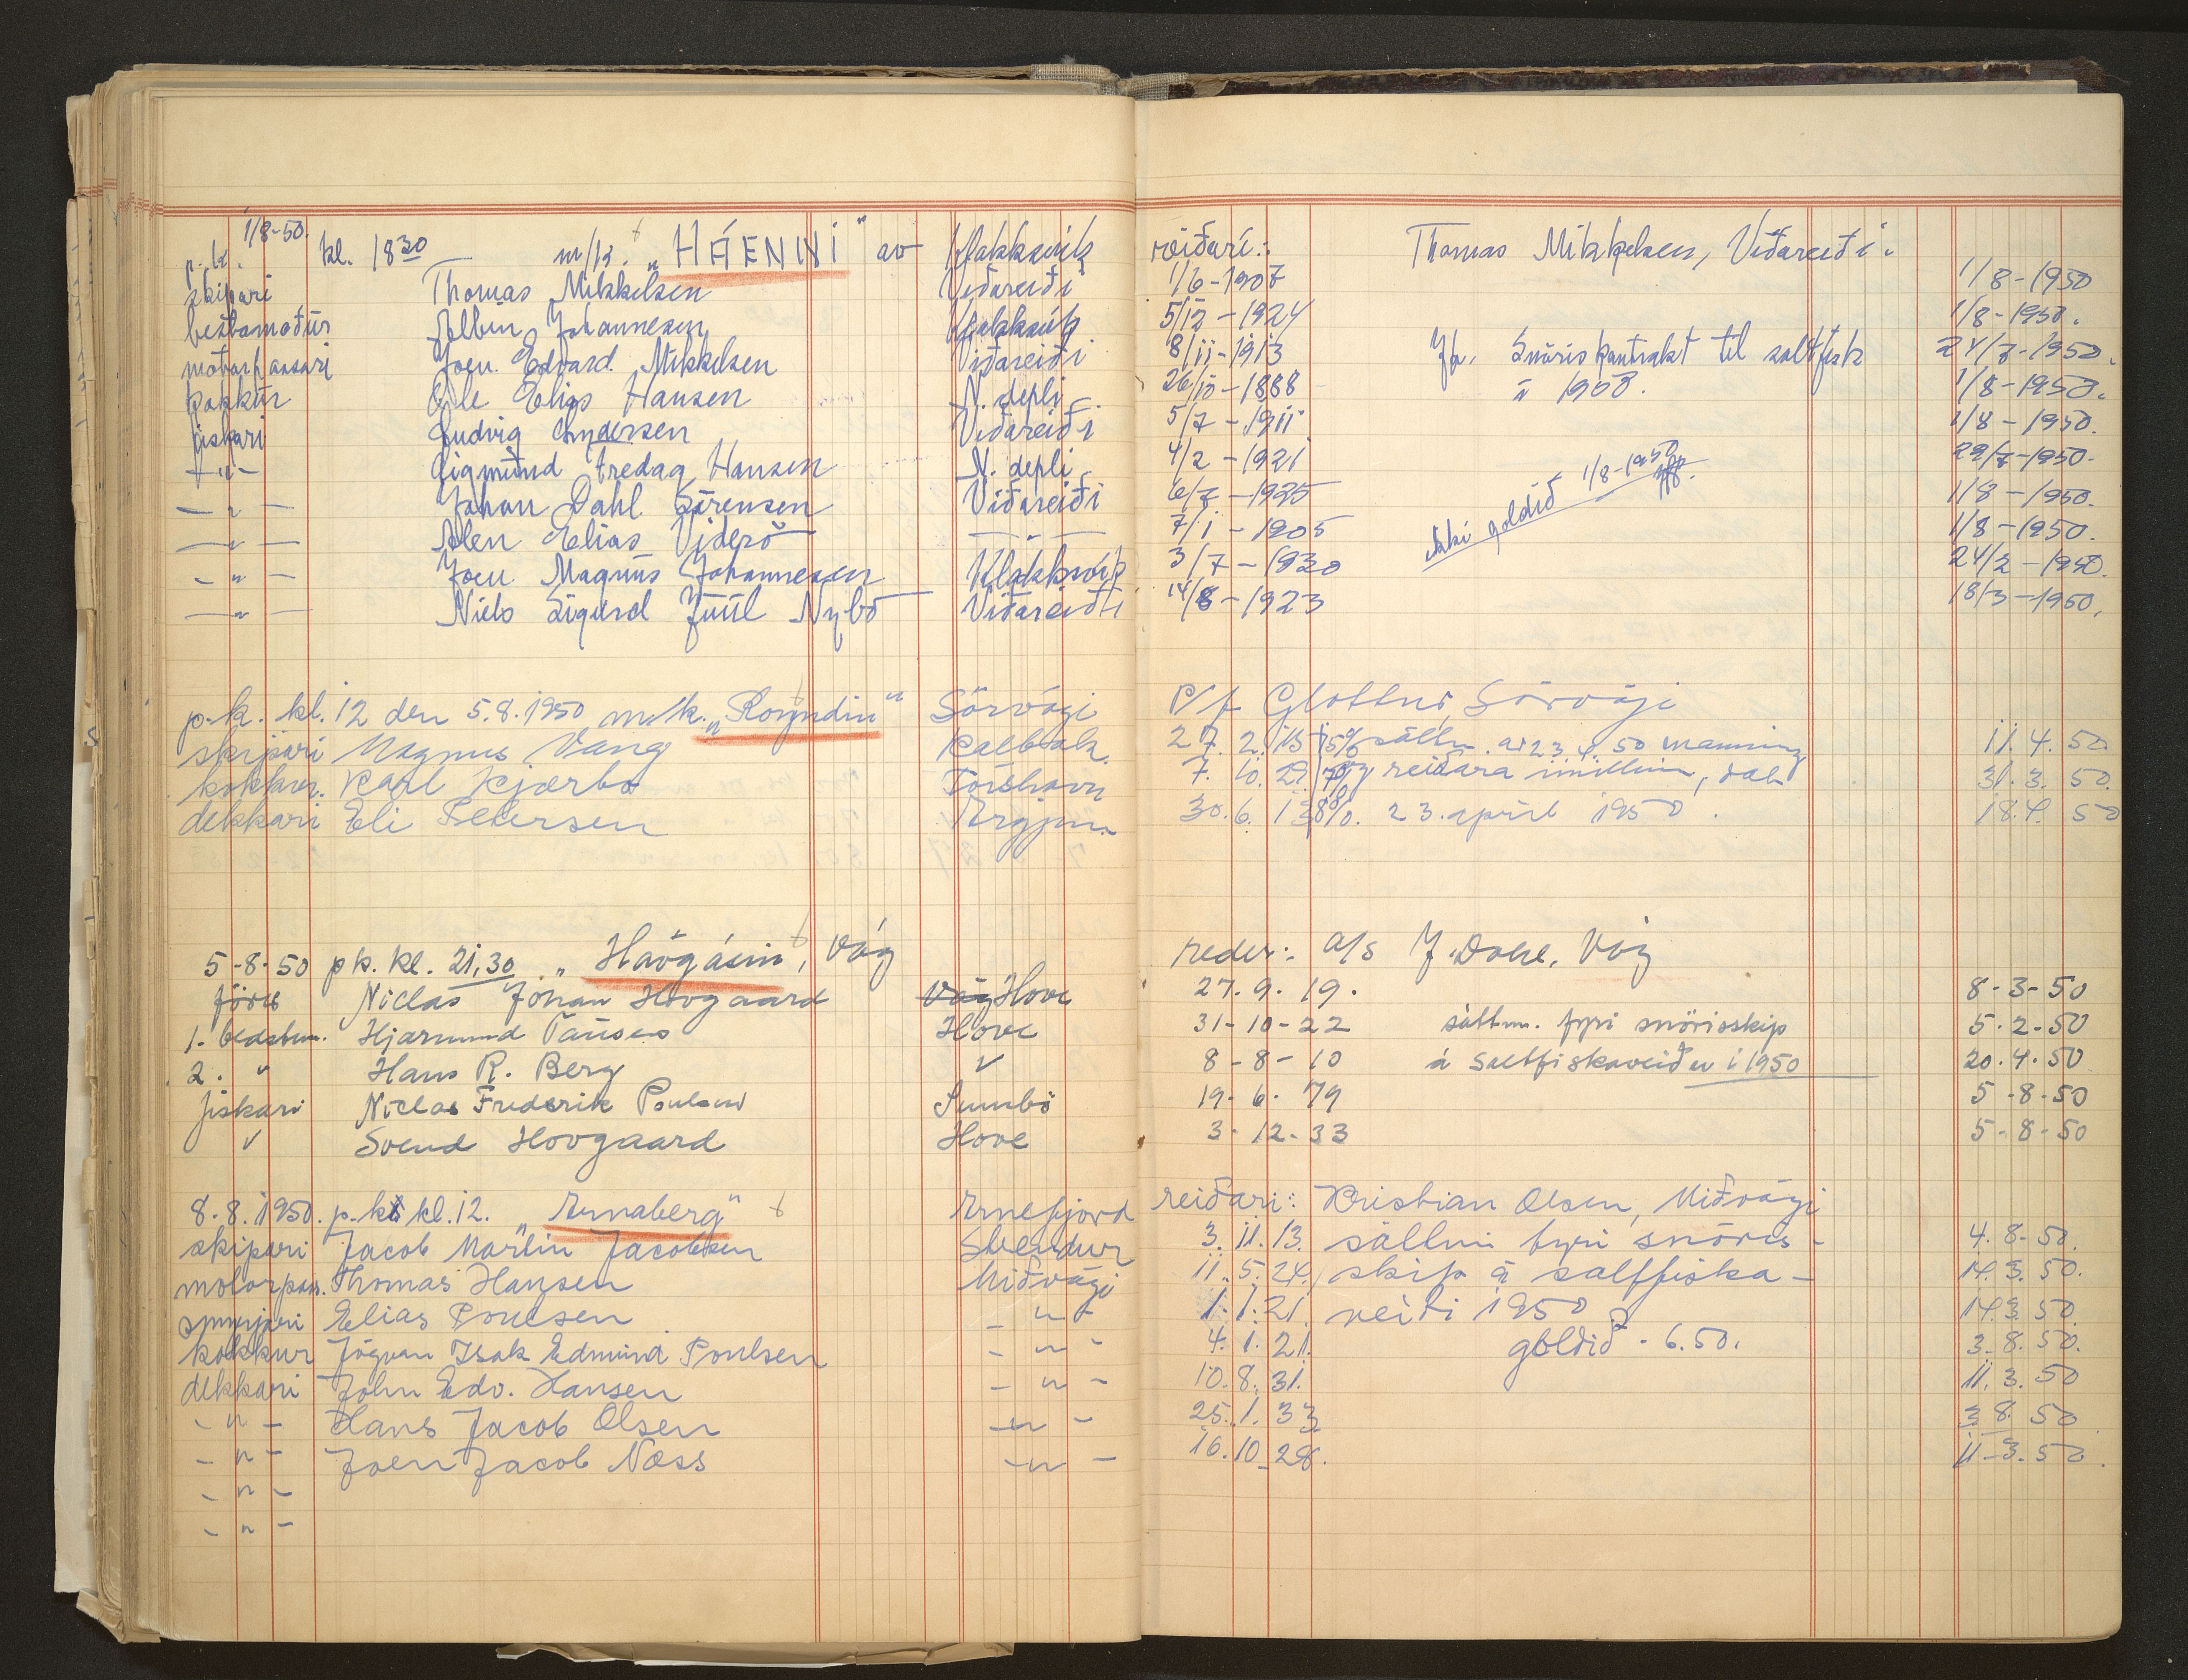 1/8-50.
p.k. kl. 18 30 m/k. „HÁENNI" av Klakksvík reiðari: Thomas Mikkelsen, Viðareiði.
skipari Thomas Mikkelsen Viðareiði 1/6-1907 1/8-1950
bestamaður Albin Johannesen Klakksvík 5/12-1924 1/8-1950.
motorpassari Joen Edvard Mikkelsen Viðareiði 8/11-1913 Jb. Snøriskontrakt til saltfisk 24/7-1950.
kokkur Ole Elias Hansen N. depli 26/10-1888 í 1950. 1/8-1950.
fiskari Ludvig Andersen Viðareiði 5/7-1911 1/8-1950.
-"- Sigmund Fredag Hansen N. depli 4/2-1921 29/7-1950.
-"- Johan Dahl Sörensen Viðareiði 6/7-1925 ikki goldið 1/8-1950 1/8-1950.
-"- Alen Elias Viderö -"- 7/1-1905 1/8-1950.
-"- Joen Magnus Johannesen Klakksvík 3/7-1930 24/2-1950.
-"- Niels Sigurd Juul Nybo Viðareiði 14/8-1923 18/3-1950.
p.k. kl. 12 den 5.8.1950 m.k. „Royndin" Sörvági P/f Glottur, Sörvági
skipari Magnus Vang Kalbak. 27. 2. 15 15% sáttm. av 23.4.50 manning 11.4.50.
kokkur. Karl Kjærbo Tórshavn 7. 10. 29. og reiðara imillum, dat. 31.3.50.
dekkari Eli Petersen Argjum 30. 6. 13 8%. 23. apríl 1950. 18.4.50
5-8-50 pk. kl. 21,30 „Hávgásin", Vág reder: a/s J. Dahl, Vág
förer Niclas Johan Hovgaard Vág Hove 27.9.19. 8-3-50
1. bedstm. Hjarmund Tausen Hove 31-10-22 sáttm. fyri snörisskip 5.2-50
2. " Hans R. Berg " 8-8-10 á saltfiskaveiðu í 1950 20.4.50
fiskari Niclas Frederik Poulsen Sumbö 19-6-79 5-8-50
" Svend Hovgaard Hove 3-12-33 5-8-50
8.8.1950. p.k. kl. 12. „Arnaberg" Arnefjord reiðari: Kristian Olsen, Miðvági
skipari Jacob Martin Jacobsen 3.11.13. sáttmi fyri snöris- 4.8.50.
motorpas. Thomas Hansen Miðvági 11.5.24. skip á saltfiska- 14.3.50.
smyrjari Elias Poulsen -"- 1.1.21. veiði 1950 14.3.50.
kokkur Jógvan Isak Edmund Poulsen -"- 4.1.21. goldið - 6.50. 3.8.50.
dekkari John Edv. Hansen -"- 10.8.31. 11.3.50
-"- Hans Jacob Olsen -"- 25.1.33 3 8. 50
-"- Joen Jacob Næss -"- 16.10.28. 11-3.50.
-"-
-"-